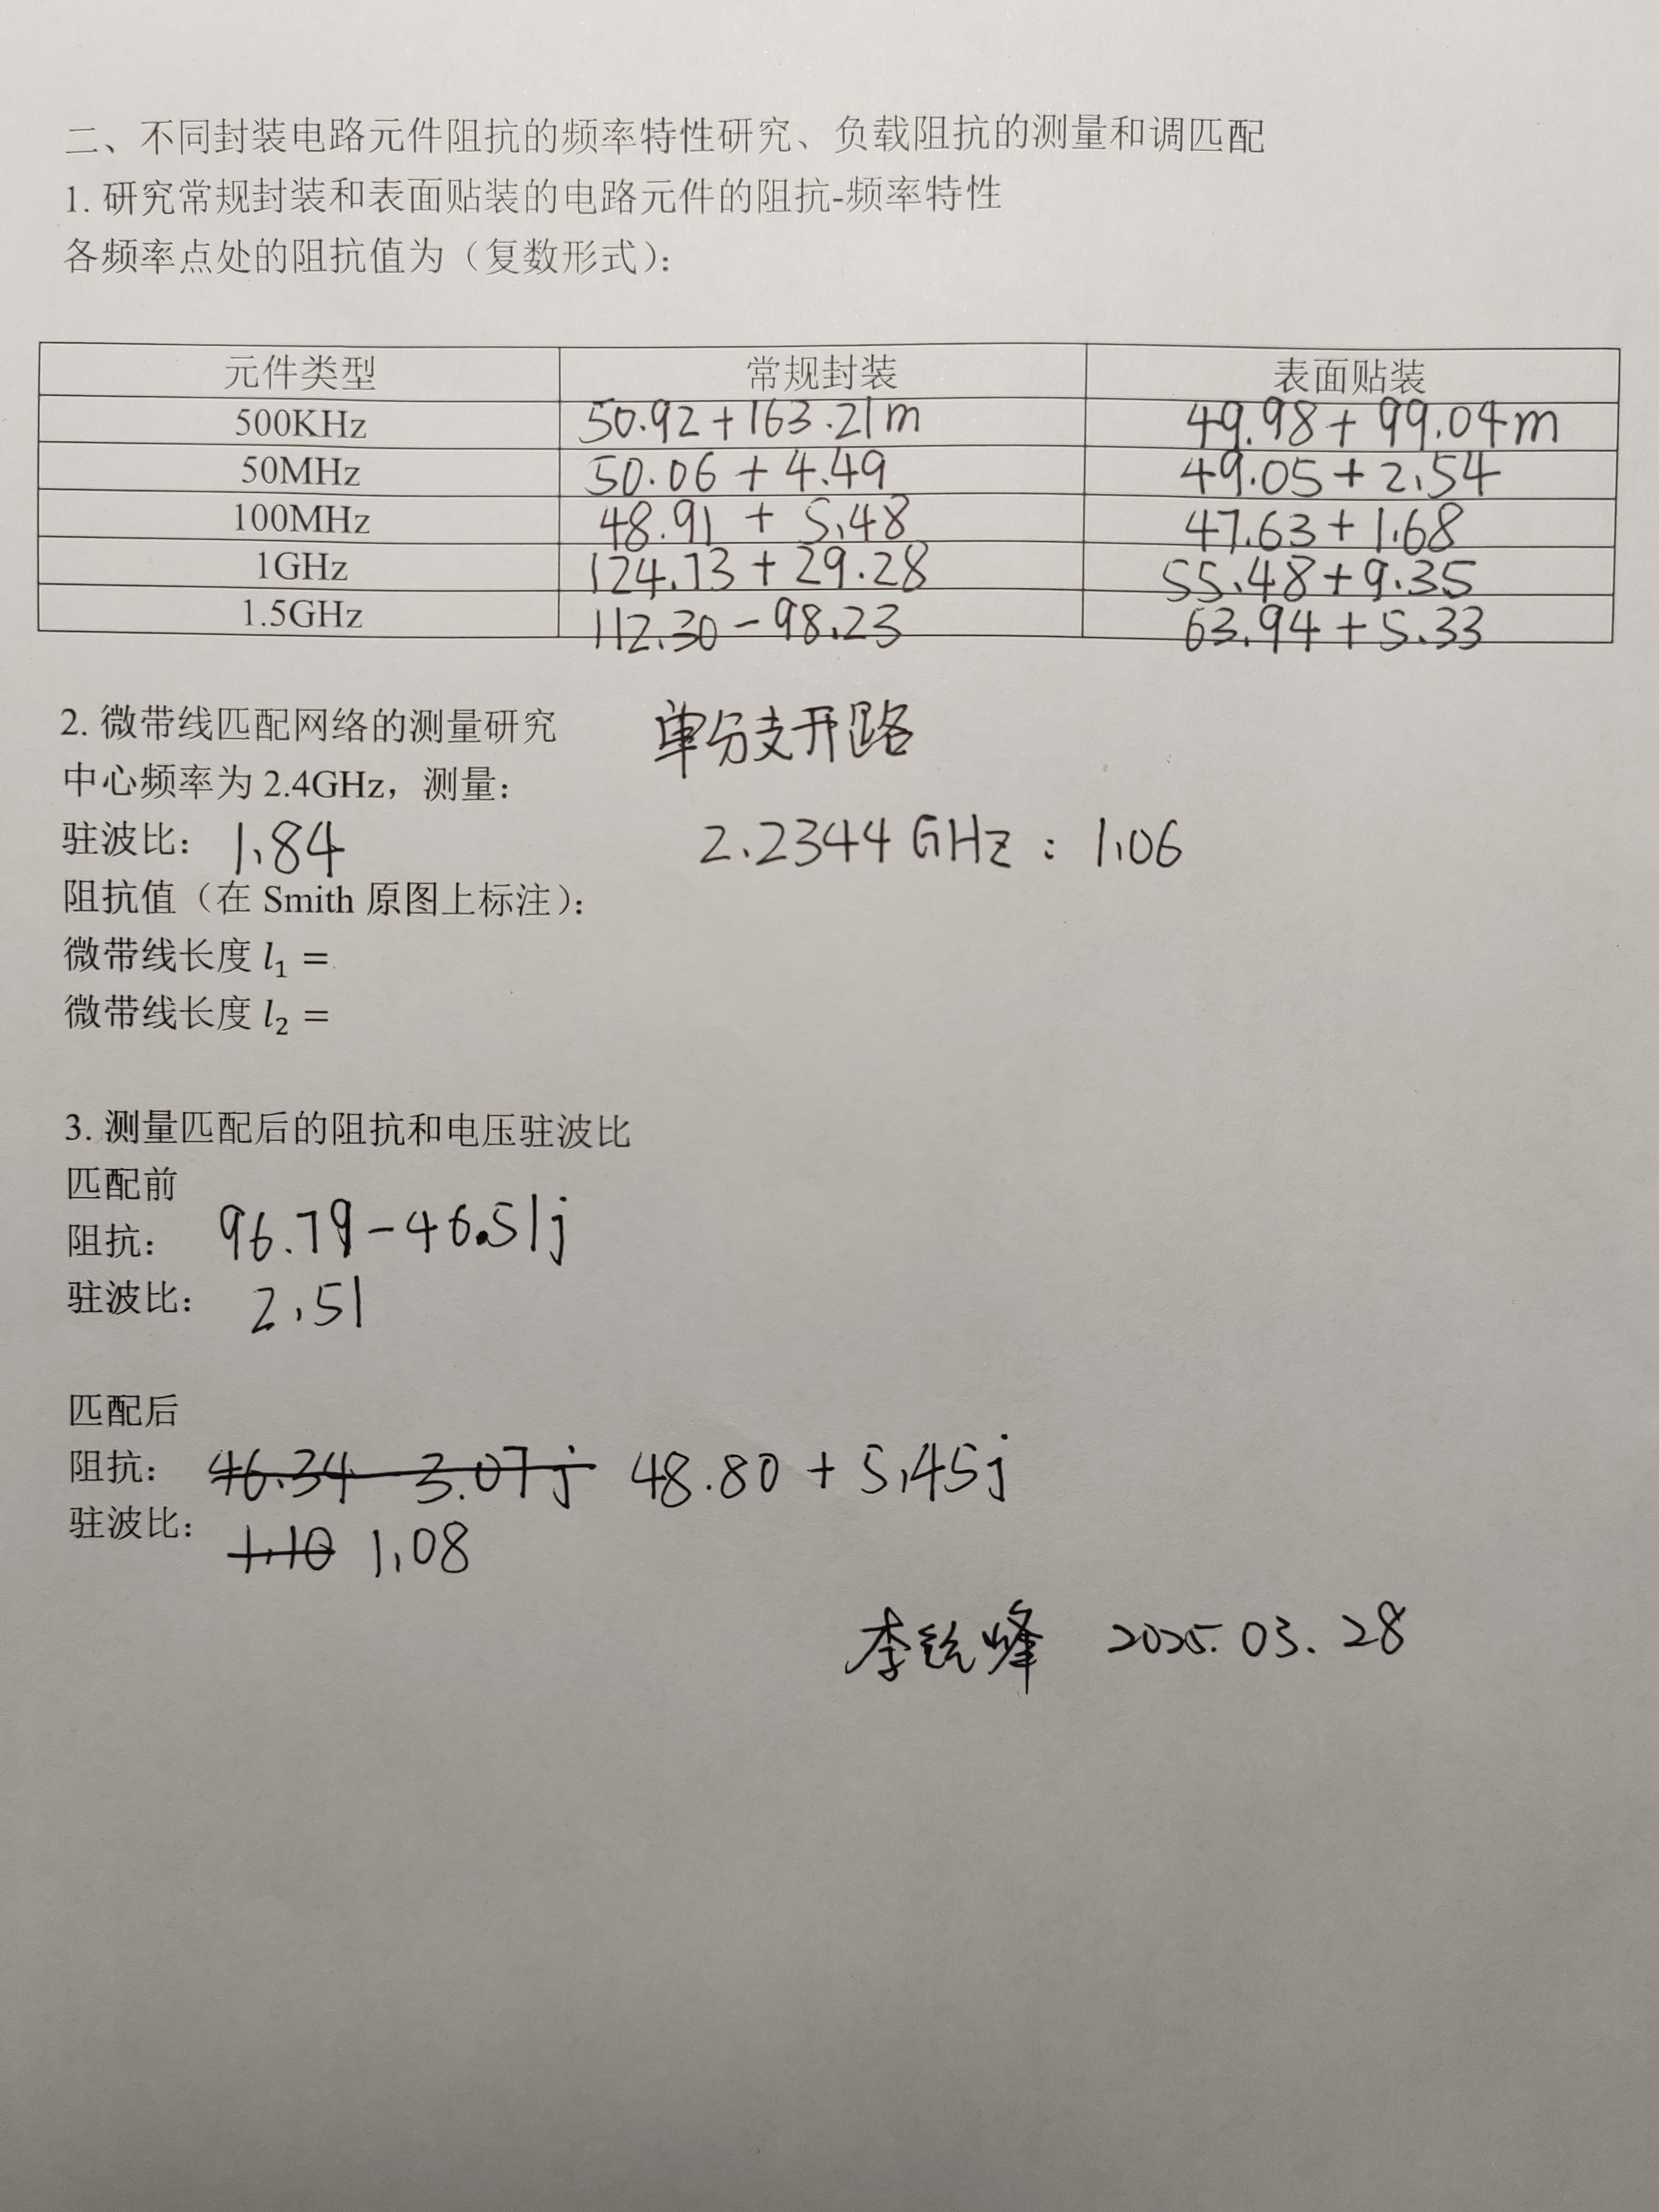 二、不同封装电路元件阻抗的频率特性研究、负载阻抗的测量和调匹配
1. 研究常规封装和表面贴装的电路元件的阻抗-频率特性
各频率点处的阻抗值为（复数形式）：
元件类型 常规封装 表面贴装
500KHz 50.92+163.21m 49.98+99.04m
50MHz 50.06+4.49 49.05+2.54
100MHz 48.91+5.48 47.63+1.68
1GHz 124.73+29.28 55.48+9.35
1.5GHz 112.30-98.23 63.94+5.33
2. 微带线匹配网络的测量研究 单分支开路
中心频率为 2.4GHz，测量：
驻波比： 1.84 2.2344 GHz : 1.06
阻抗值（在 Smith 原图上标注）：
微带线长度 l₁ =
微带线长度 l₂ =
3. 测量匹配后的阻抗和电压驻波比
匹配前
阻抗： 96.79-46.51j
驻波比： 2.51
匹配后
阻抗： 46.34 - 3.07j 48.80+5.45j
驻波比： 1.10 1.08
李锐峰 2025.03.28